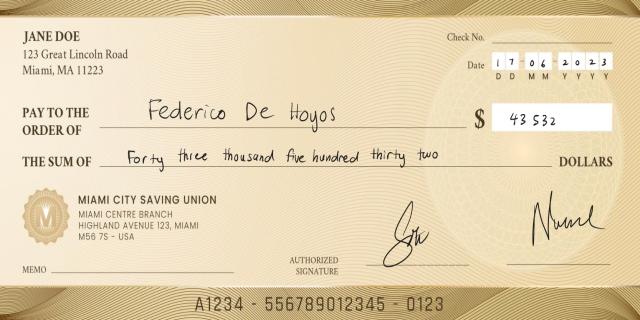 JANE DOE
123 Great Lincoln Road
Miami, MA 11223
Check No.
Date 17 06 2023
D D M M Y Y Y Y
PAY TO THE
ORDER OF Federico De Hoyos
$ 43 532
THE SUM OF Forty three thousand five hundred thirty two DOLLARS
M
MIAMI CITY SAVING UNION
MIAMI CENTRE BRANCH
HIGHLAND AVENUE 123, MIAMI
M56 7S - USA
MEMO
AUTHORIZED
SIGNATURE
A1234 - 556789012345 - 0123